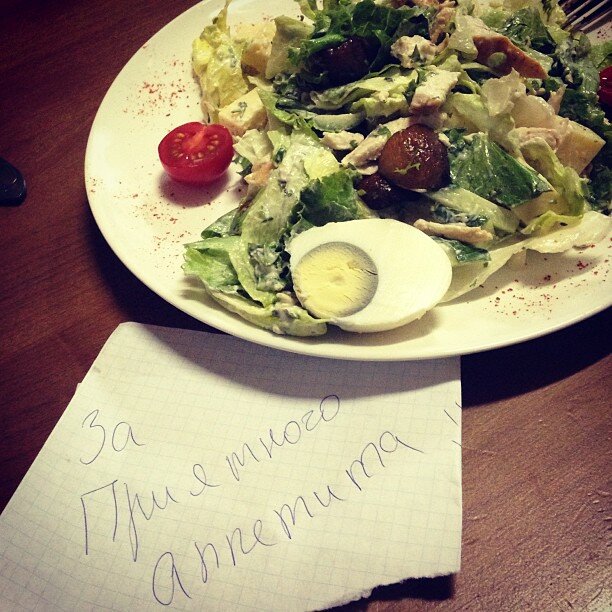 За
Приятного
аппетита !!